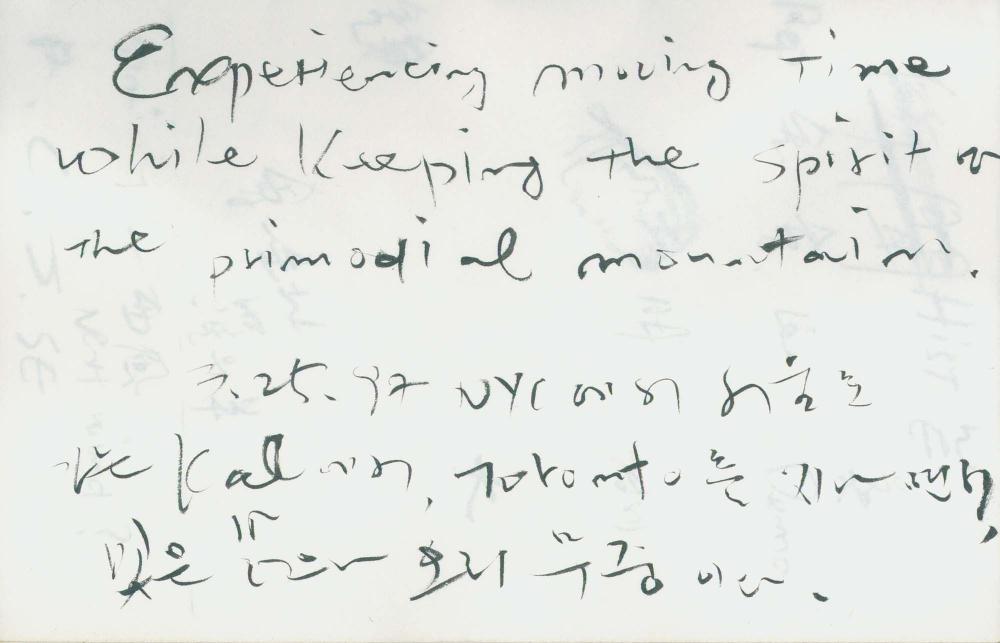 Experiencing moving Time
while Keeping the spirit
the primodial mountain.
NYC에서 서울로
가는 Kal에서, Toronto를 지나면서,
빛은 있으나 오리 무중 이다.